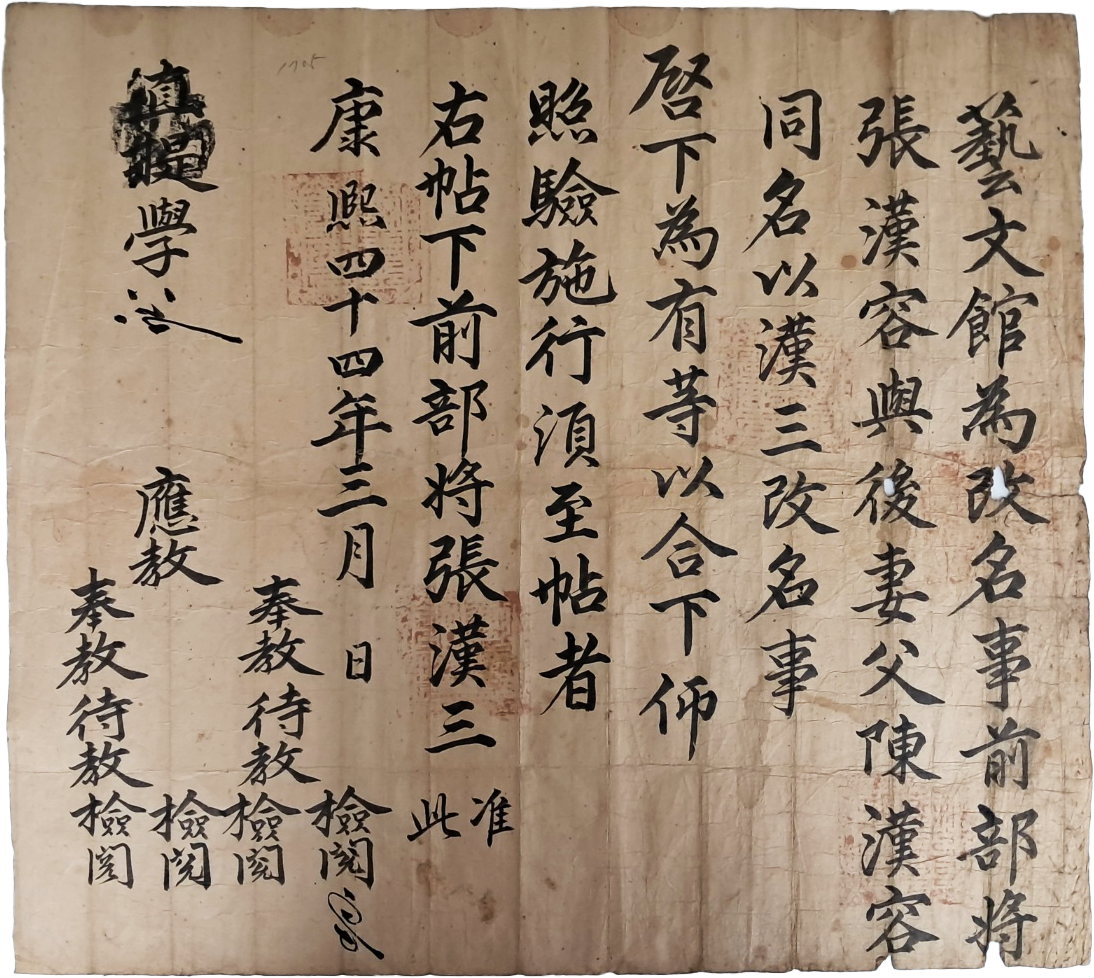 藝文館為改名事前部將
張漢容與後妻父陳漢容
同名以漢三改名事
啓下為有等以合下仰
照驗施行須至帖者
右帖下前部將張漢三
准
此
康熙四十四年三月 日
1705
直提學
應教
奉教待教檢閱
檢閱
檢閱
奉教待教檢閱